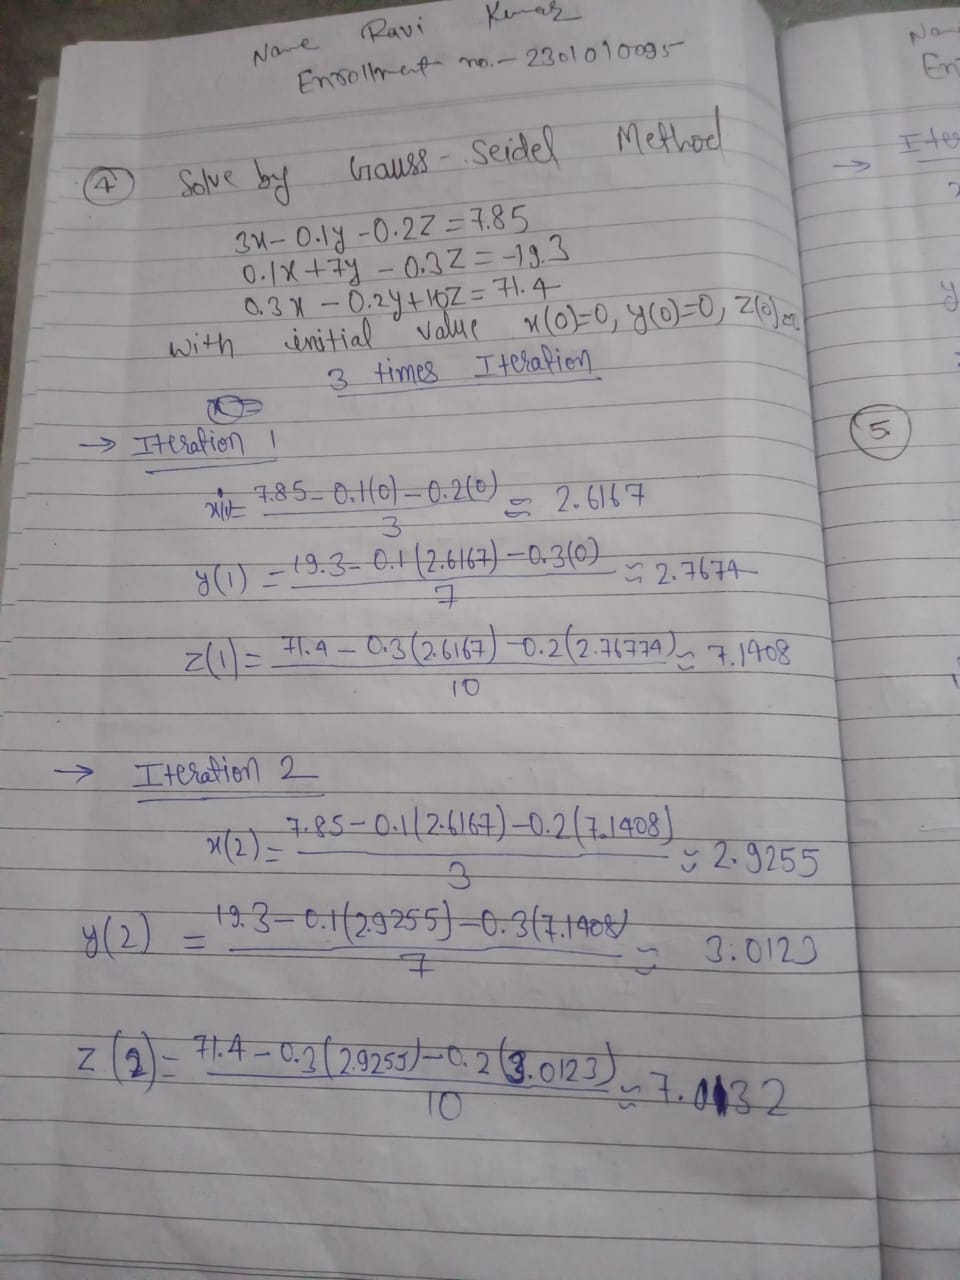 Name Ravi Kumar
Enrollment no.- 2301010095
④ Solve by Gauss-Seidel Method
3x - 0.1y - 0.2z = 7.85
0.1x + 7y - 0.3z = -19.3
0.3x - 0.2y + 10z = 71.4
with initial value x(0)=0, y(0)=0, z(0)=0
3 times Iteration
→ Iteration 1
x(1)= 7.85 - 0.1(0) - 0.2(0) / 3 ≈ 2.6167
y(1) = 19.3 - 0.1(2.6167) - 0.3(0) / 7 ≈ 2.7674
z(1) = 71.4 - 0.3(2.6167) - 0.2(2.76774) / 10 ≈ 7.1408
→ Iteration 2
x(2) = 7.85 - 0.1(2.6167) - 0.2(7.1408) / 3 ≈ 2.9255
y(2) = 19.3 - 0.1(2.9255) - 0.3(7.1408) / 7 ≈ 3.0123
z(2) = 71.4 - 0.3(2.9255) - 0.2(3.0123) / 10 ≈ 7.0132
Nam
En
→ Iter
y
⑤